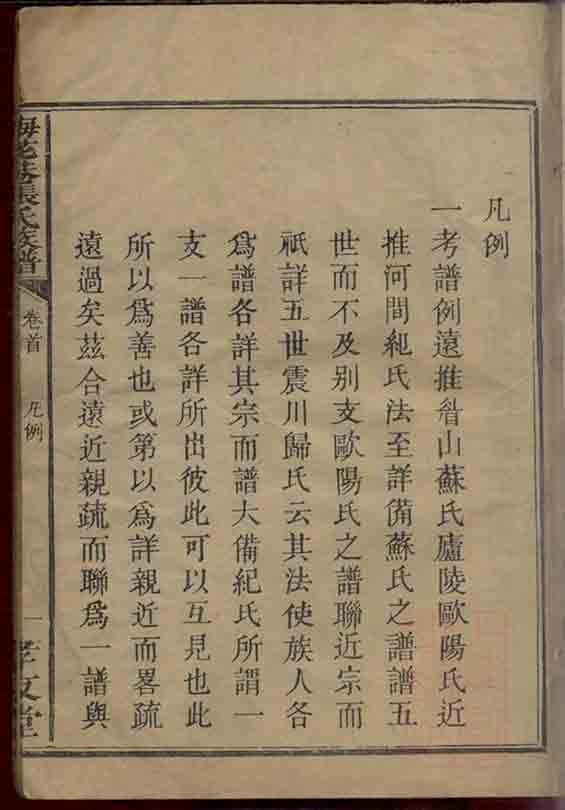 凡例
一考譜例遠推眉山蘇氏廬陵歐陽氏近
推河間紀氏法至詳備蘇氏之譜譜五
世而不及别支歐陽氏之譜聯近宗而
祇詳五世震川歸氏云其法使族人各
爲譜各詳其宗而譜大備紀氏所謂一
支一譜各詳所出彼此可以互見也此
所以爲善也或第以爲詳親近而畧疏
遠過矣茲合遠近親疏而聯爲一譜與
梅花巷張氏族譜
卷首
凡例
一
孝友堂